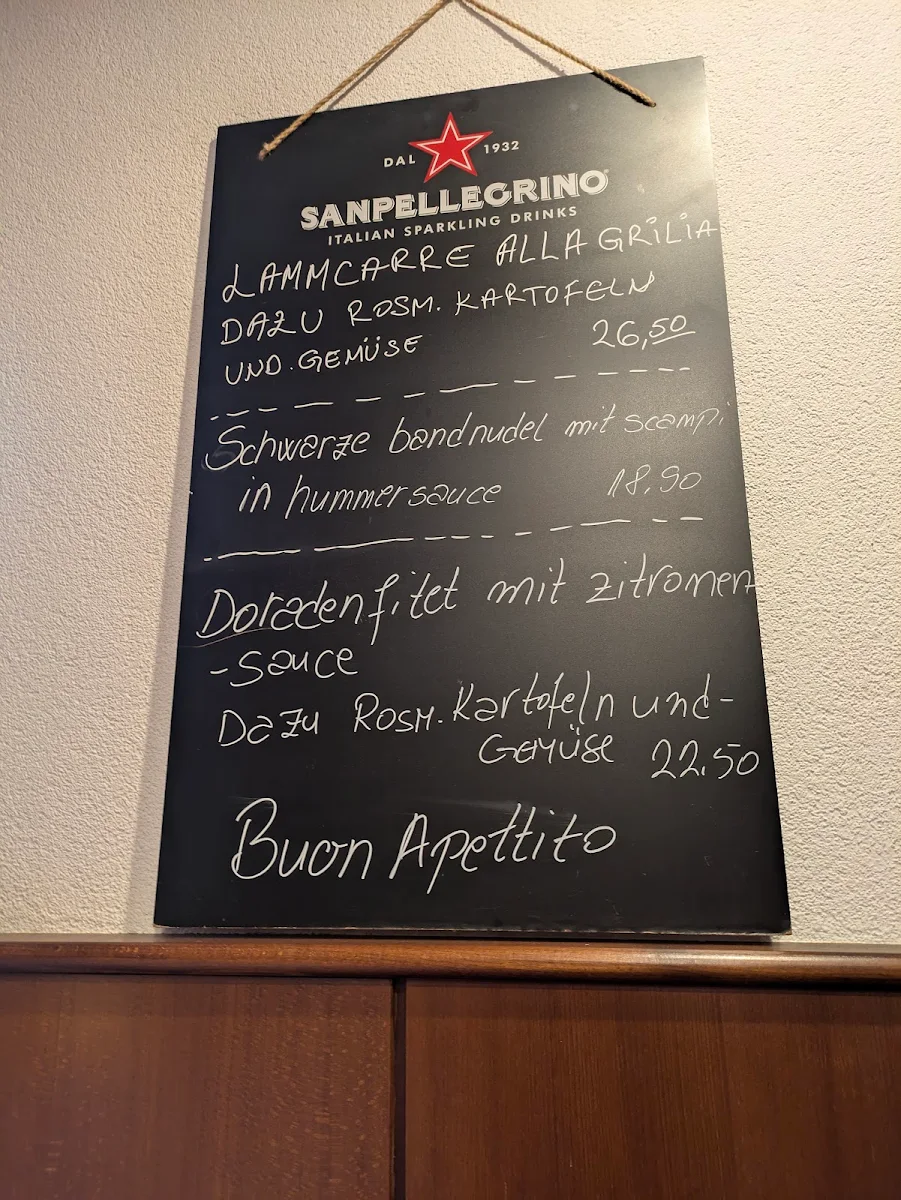 DAL 1932
SANPELLEGRINO
ITALIAN SPARKLING DRINKS
LAMMCARRE ALLA GRILIA
DAZU ROSM. KARTOFELN
UND. GEMÜSE 26,50
Schwarze bandnudel mit scampi
in hummersauce 18.90
Doradenfilet mit zitronen
-sauce
Dazu Rosm. Kartofeln und-
Gemüse 22.50
Buon Apettito